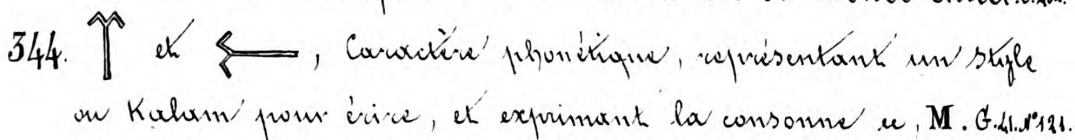 344. et , Caractère phonétique, représentant un style
ou Kalam pour érire, et exprimant la consonne M. G.